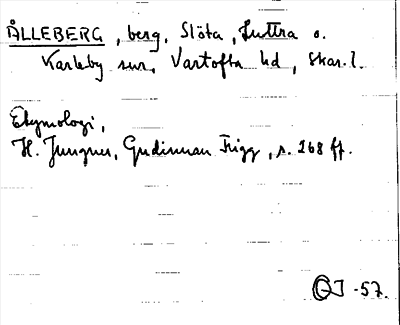 ÅLLEBERG, berg, Slöta, Luttra o.
Karleby snr, Vartofta hd, Skar. l.
Etymologi,
H. Jungner, Gudinnan Frigg, s. 268 ff.
GJ -57.